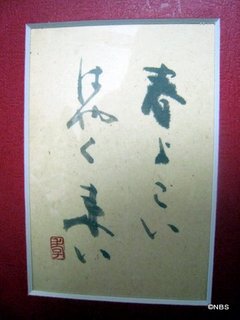 春よこい
はやく来い
©NBS